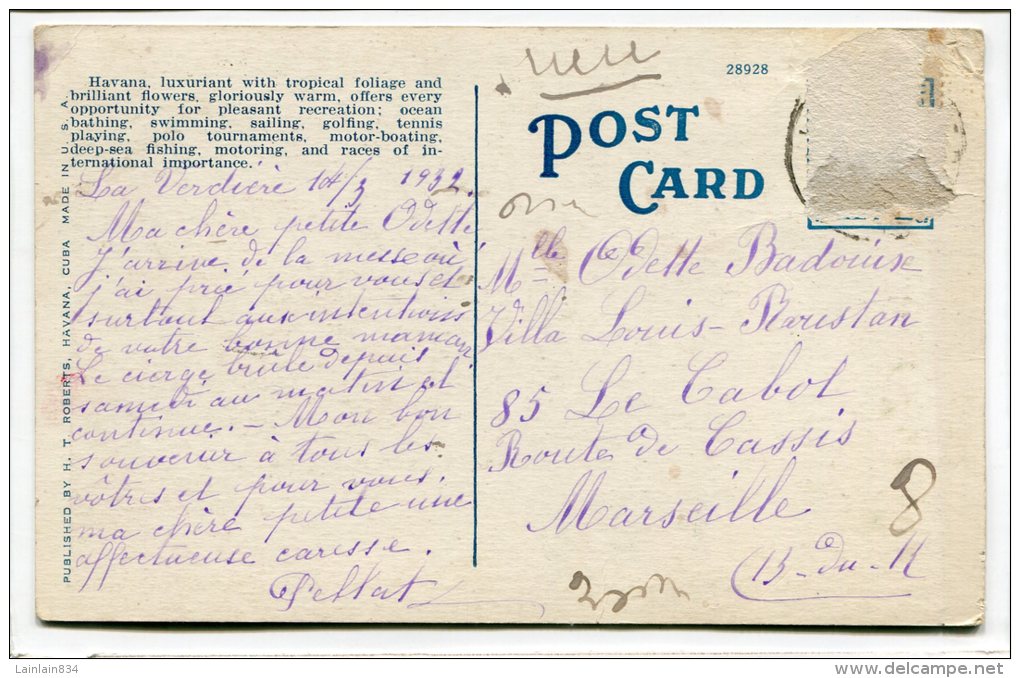 Havana, luxuriant with tropical foliage and
brilliant flowers, gloriously warm, offers every
opportunity for pleasant recreation; ocean
bathing, swimming, sailing, golfing, tennis
playing, polo tournaments, motor-boating,
deep-sea fishing, motoring, and races of in-
ternational importance.
PUBLISHED BY H. T. ROBERTS, HAVANA, CUBA MADE IN U. S. A.
28928
POST
CARD
La Verdière 14/3 1932.
Ma chère petite Odette
J'arrive de la messe où
j'ai prié pour vous et
surtout aux intentions
de votre bonne maman
Le cierge brûle depuis
samedi au matin et
continue. - Mon bon
souvenir à tous les
vôtres et pour vous,
ma chère petite une
affectueuse caresse.
Pellat
Mlle Odette Badouix
Villa Louis-Raristan
85 Le Cabot
Route de Cassis
Marseille
B-du-R
8
Lainlain834
delcampe.net